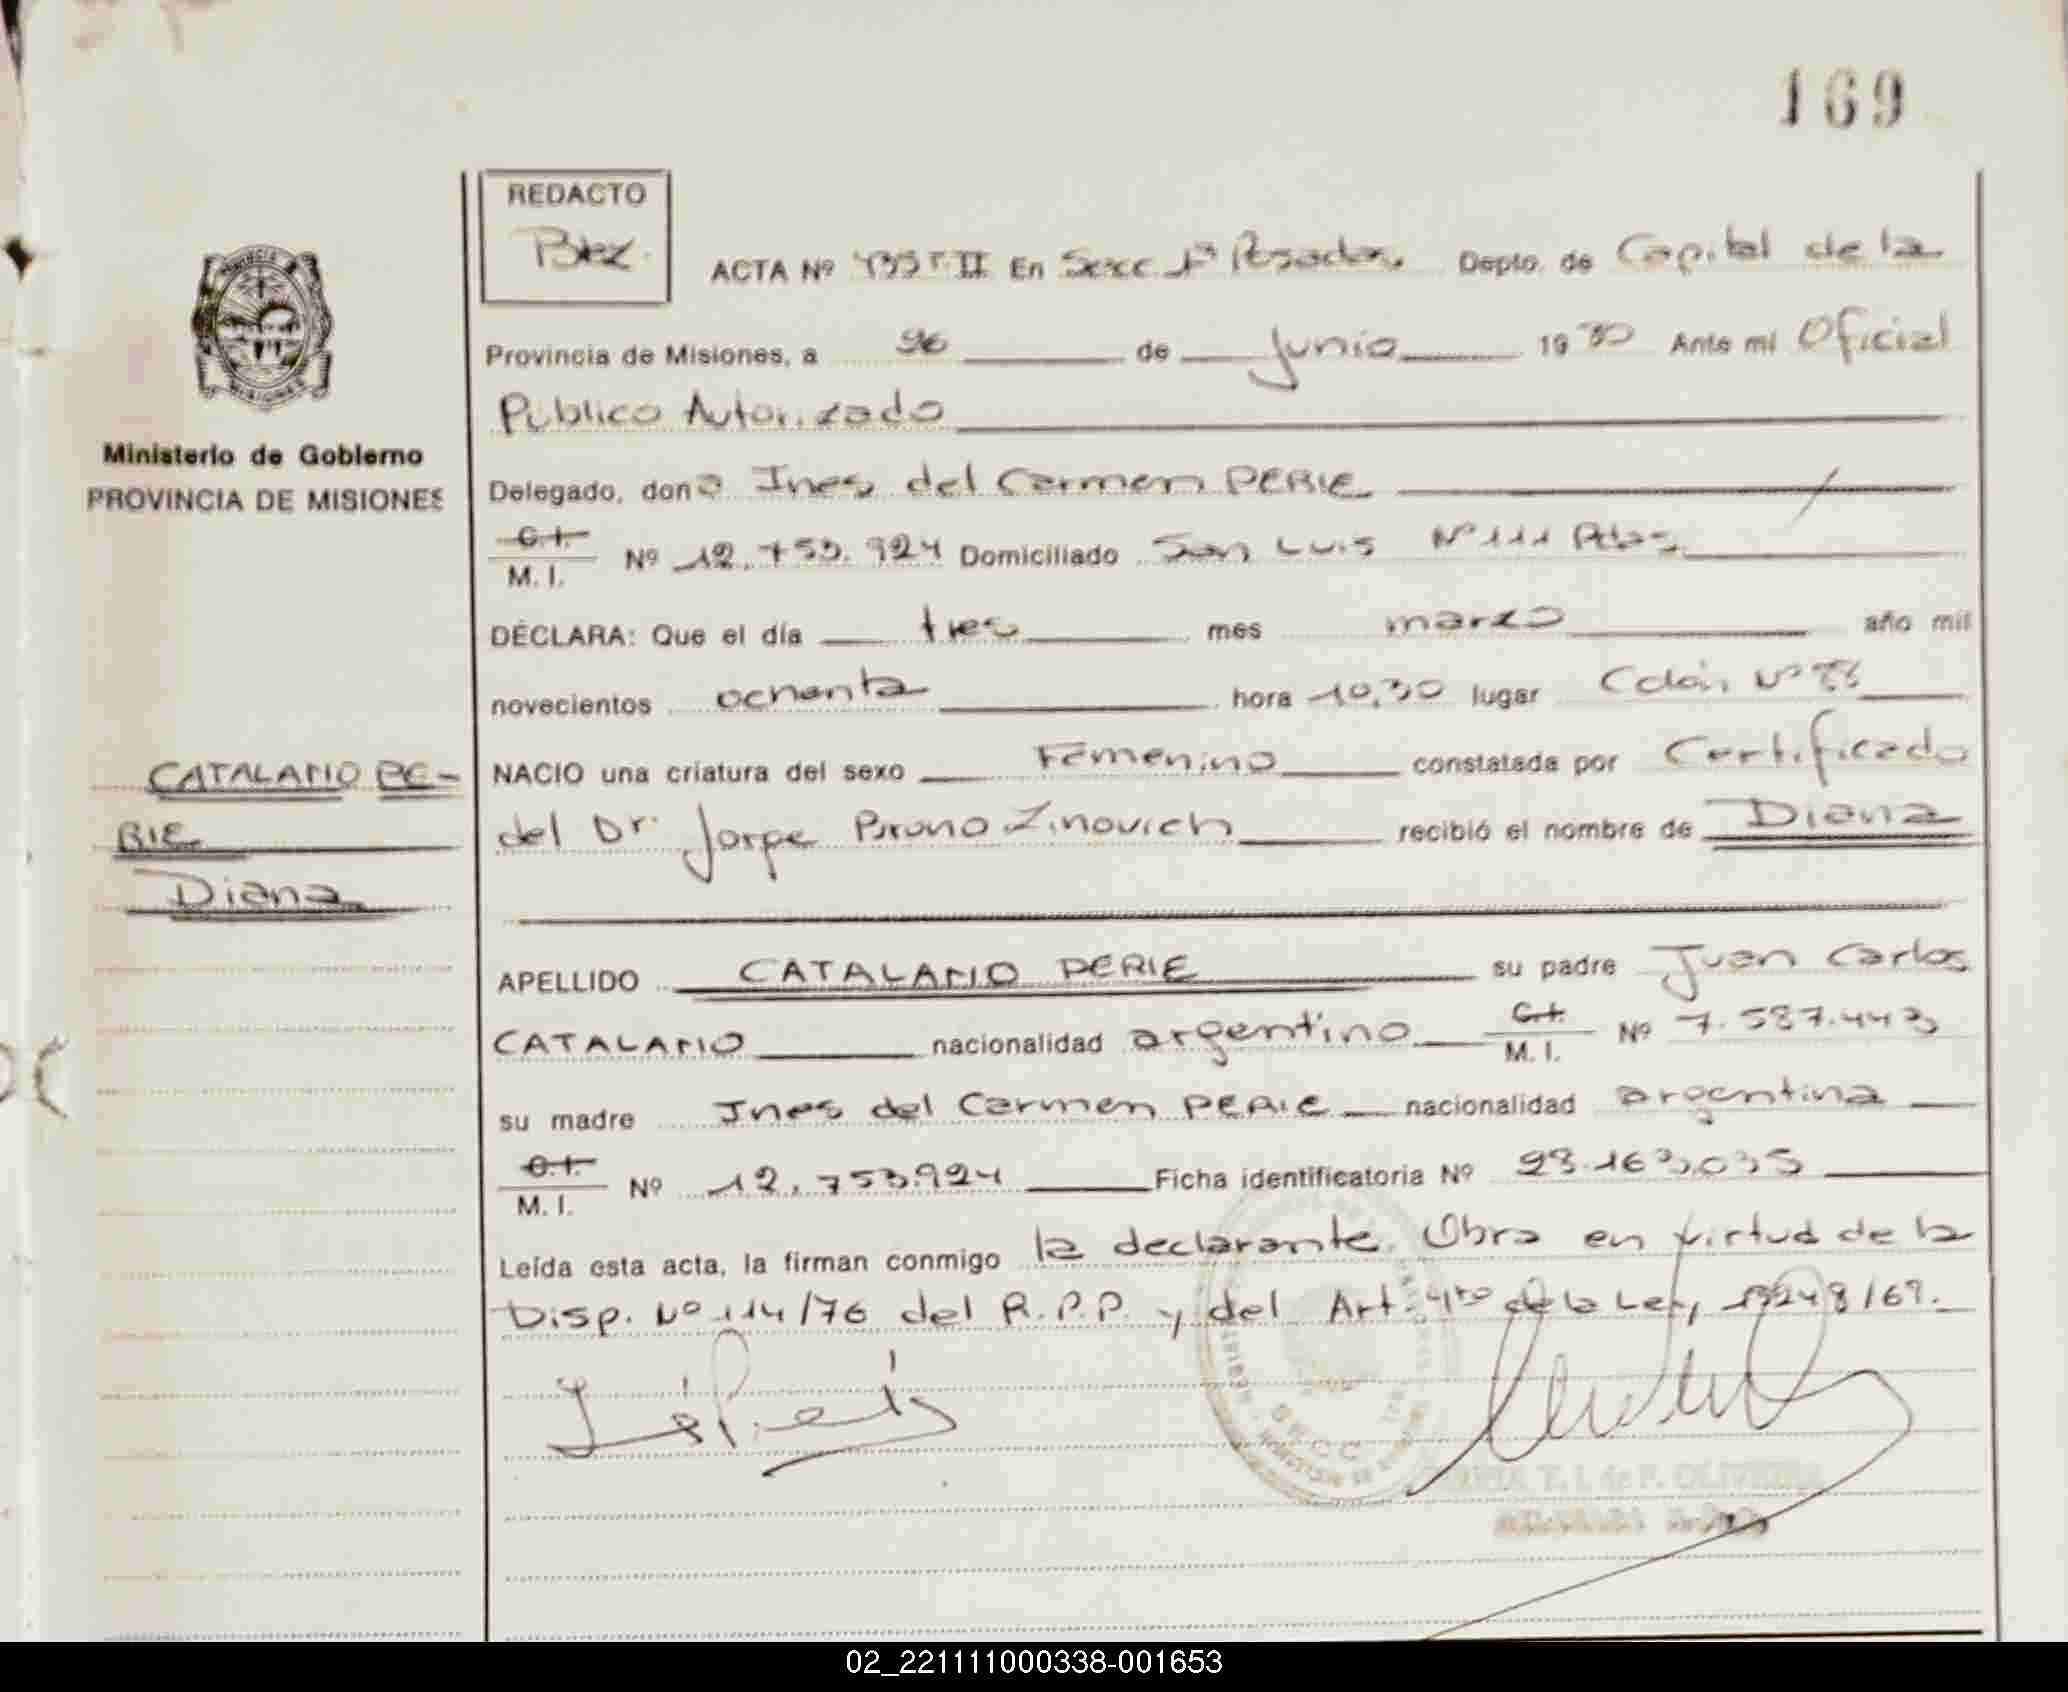 169
REDACTO
Baez.
ACTA Nº T II En Secc 1ª Posadas. Depto. de Capital de la
Provincia de Misiones, a 26 de Junio 1980 Ante mi Oficial
Publico Autorizado
Ministerio de Gobierno
PROVINCIA DE MISIONES
Delegado, don a Ines del Carmen PERIE
C.I. M. I. Nº 12.753.924 Domiciliado San Luis Nº 111 Pdas.
DECLARA: Que el día tres mes marzo año mil
novecientos ochenta hora 10,30 lugar Colón Nº
CATALANO PE-
RIE
Diana
NACIO una criatura del sexo Femenino constatada por Certificado
del Dr. Jorge Bruno Zinovich recibió el nombre de Diana
APELLIDO CATALANO PERIE su padre Juan Carlos
CATALANO nacionalidad argentino C.I. M. I. Nº 7.587.443
su madre Ines del Carmen PERIE nacionalidad argentina
C.I. M. I. Nº 12.753.924 Ficha identificatoria Nº 28.163.035
Leída esta acta, la firman conmigo la declarante. Obra en virtud de la
Disp. Nº 114/76 del R.P.P. y del Art. 4to de la Ley 18248/69.
T. I. de F. OLIVEIRA
02_221111000338-001653